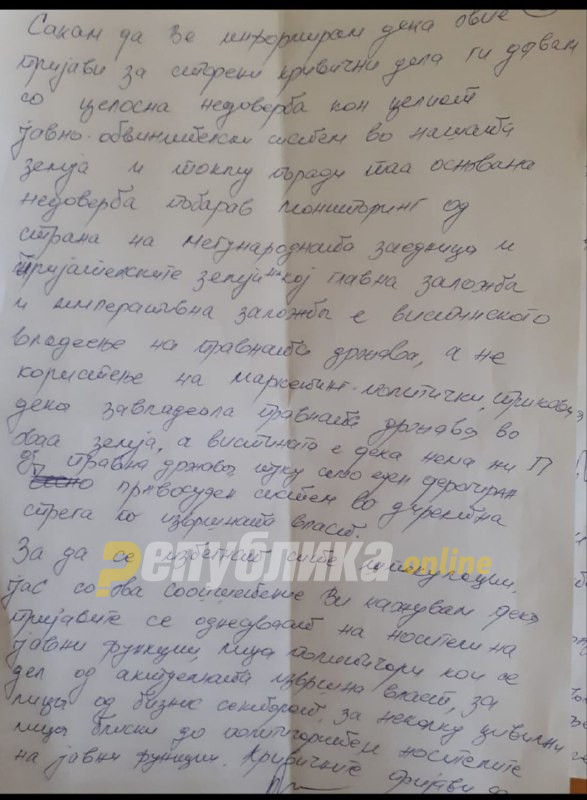 Сакам да Ве информирам дека овие
пријави за сторени кривични дела ги давам
со целосна недоверба кон целиот
јавно-обвинителски систем во нашата
земја и токму поради таа основана
недоверба побарав мониторинг од
страна на меѓународната заедница и
пријателските земји на кој главна заложба
и императивна заложба е вистинското
владеење на правната држава, а не
користење на маркетинг-политички трикови,
дека завладеала правната држава во
оваа земја, а вистината е дека нема ни П
од правна држава, туку само еден
правосуден систем во директна
спрега со извршната власт.
За да се избегнат сите шпекулации,
јас со ова соопштение Ви кажувам дека
пријавите се однесуваат на носители на
јавни функции, лица политичари кои се
дел од актуелната извршна власт, за
лица од бизнис секторот, за неколку цивилни
лица блиски до политичарите и носителите
на јавни функции. Кривичните пријави
Република online